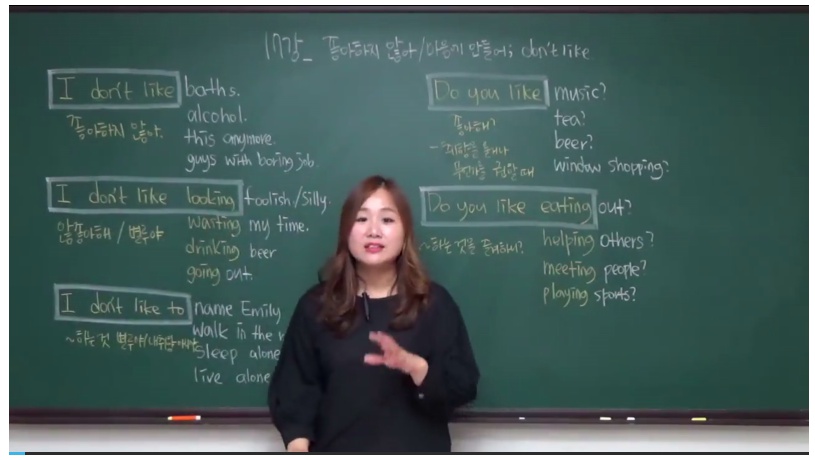 17강_ 좋아하지 않아/마음에 안들어; don't like
I don't like baths.
좋아하지 않아. alcohol.
this anymore.
guys with boring job.
I don't like looking foolish/silly.
안좋아해 / 별루야 wasting my time.
drinking beer
going out.
I don't like to name Emily
~하는 것 별루야/내취향 아니야 walk in the
sleep alone
live alone
Do you like music?
좋아해? tea?
- 취향을 묻거나 beer?
무언가를 권할 때 window shopping?
Do you like eating out?
~하는 것을 좋아하니? helping others?
meeting people?
playing sports?